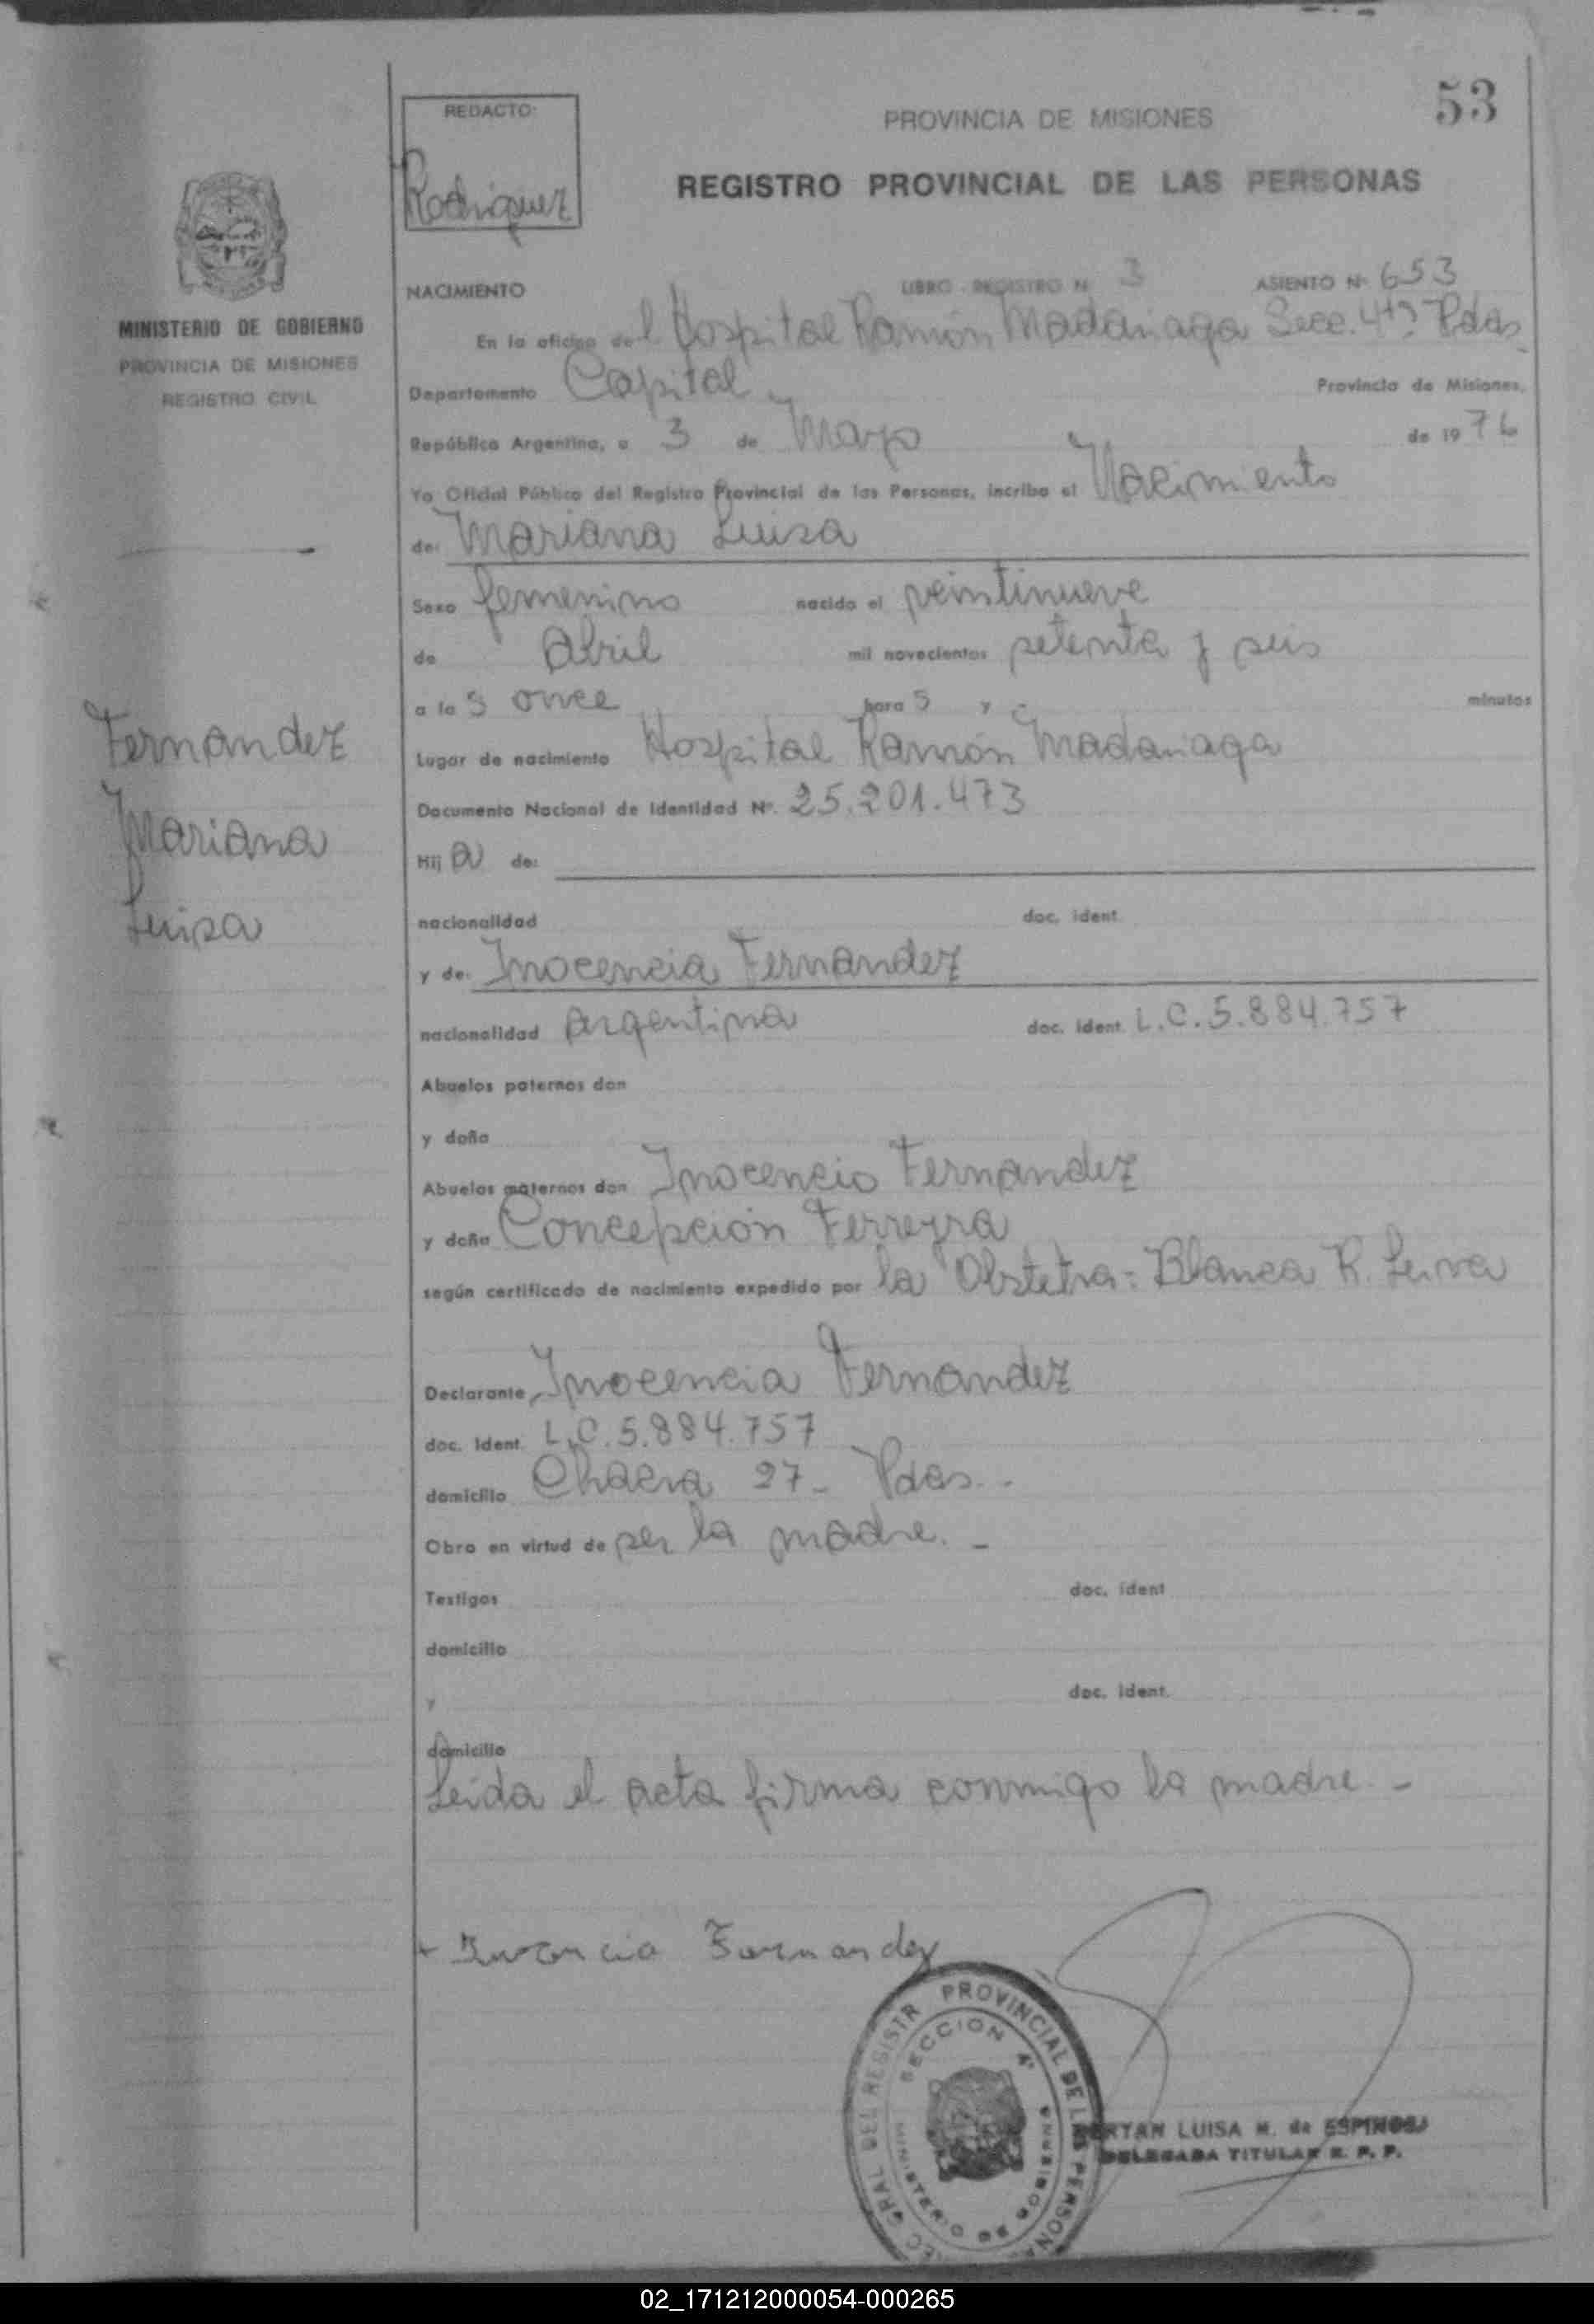 53
REDACTO:
Rodriguez
PROVINCIA DE MISIONES
REGISTRO PROVINCIAL DE LAS PERSONAS
MINISTERIO DE GOBIERNO
PROVINCIA DE MISIONES
REGISTRO CIVIL
NACIMIENTO LIBRO REGISTRO Nº 3 ASIENTO Nº 653
En la oficina del Hospital Ramón Madariaga Secc. 4ta Pdas.
Departamento Capital Provincia de Misiones,
República Argentina, a 3 de Mayo de 1976
Yo Oficial Público del Registro Provincial de las Personas, incribo el Nacimiento
de: Mariana Luisa
Sexo femenino nacido el veintinueve
de Abril mil novecientos setenta y seis
a las once horas y minutos
Fernandez
Mariana
Luisa
Lugar de nacimiento Hospital Ramón Madariaga
Documento Nacional de Identidad Nº. 25.201.473
Hija de:
nacionalidad doc. ident.
y de: Inocencia Fernandez
nacionalidad Argentina doc. ident. L.C. 5.884.757
Abuelos paternos don
y doña
Abuelos maternos don Inocencio Fernandez
y doña Concepción Ferreyra
según certificado de nacimiento expedido por la Obstetra: Blanca R. Leiva
Declarante Inocencia Fernandez
doc. ident. L.C. 5.884.757
domicilio Chacra 27 - Pdas. -
Obra en virtud de ser la madre. -
Testigos doc. ident
domicilio
y doc. ident.
domicilio
Leída el acta firma conmigo la madre. -
Fernandez
PROVINCIAL DE LAS PERSONAS
GRAL DEL REGISTR
SECCION 4ª
MINISTERIO DE GOBIERNO
LUISA M. de ESPINOSA
DELEGADA TITULAR R. P. P.
02_171212000054-000265